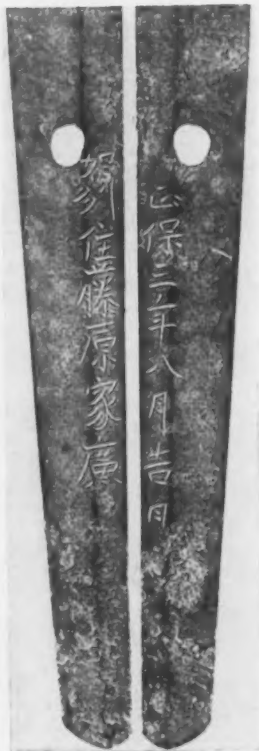 正保三年八月吉日
賀州住藤原家廣